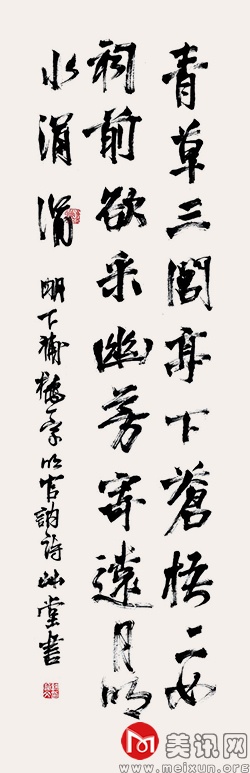 青草三閭亭下蒼梧二女
祠前欲采幽芳寄遠月明
水涓涓
明 詩 堂書
美讯网
www.meixun.org